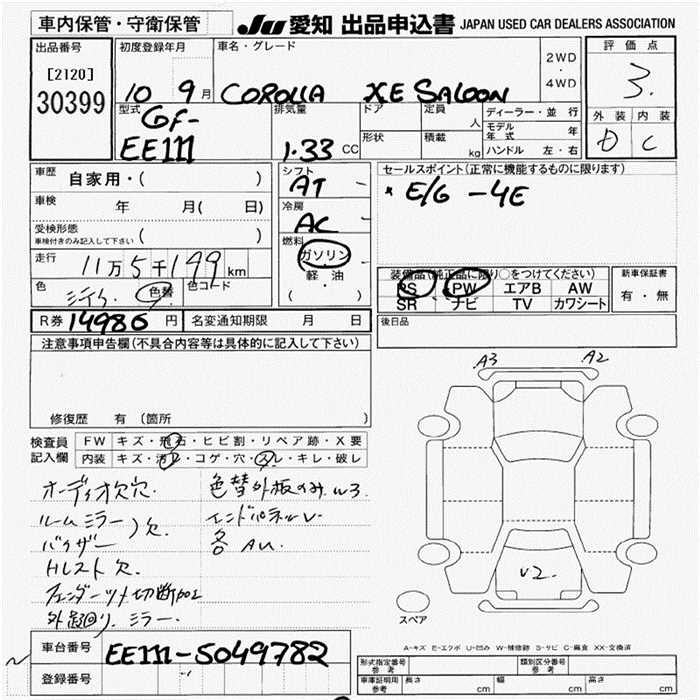 車内保管・守衛保管
JU 愛知 出品申込書 JAPAN USED CAR DEALERS ASSOCIATION
出品番号
[2120]
30399
初度登録年月
10 9月
車名・グレード
COROLLA XE SALOON
2WD
4WD
評価点
3.
外装 内装
D C
型式
GF-
EE111
排気量
1.33 CC
ドア
形状
定員
人
積載
kg
ディーラー・並行
モデル年式 年
ハンドル 左・右
車歴 自家用・( )
車検 年 月( 日)
受検形態
車検付きのみ記入して下さい ( )
走行 11万5千199 km
色 色替 色コード
シフト
AT
冷房
AC
燃料
ガソリン
・
軽油
( ・ )
セールスポイント(正常に機能するものに限ります)
* E/G -4E
装備品(純正品に限り○をつけてください)
PS PW エアB AW
SR ナビ TV カワシート
新車保証書
有・無
後日品
R券 14980 円
名変通知期限 月 日
注意事項申告欄(不具合内容等は具体的に記入して下さい)
修復歴 有 (箇所 )
検査員記入欄
FW キズ・飛石・ヒビ割・リペア跡・X要
内装 キズ・汚レ・コゲ・穴・スレ・キレ・破レ
オーディオ欠穴
ルームミラー
バイザー )欠
Hレスト欠
外廻り.ミラー.
色替外板のみ W3
エンドパネル
各 AU.
A3 A2
V2.
スペア
A-キズ E-エクボ U-凹み W-補修跡 S-サビ C-腐食 XX-交換済
車台番号 EE111-5049782
登録番号
形式指定番号
参考
類別区分番号
参考
車庫証明用
参考
長さ cm
幅 cm
高さ cm